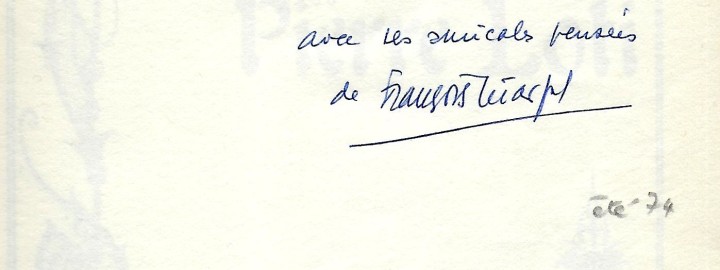 avec les amicales pensées
de François
été 74